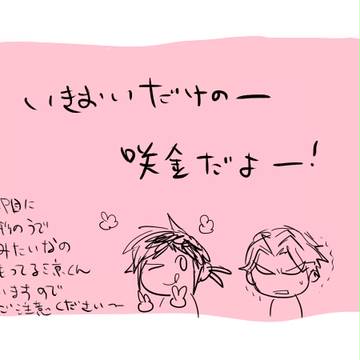 いきおいだけのー
咲金だよー!
目に
のうで
みたいなの
もってる涼くん
いますので
ご注意くださいー